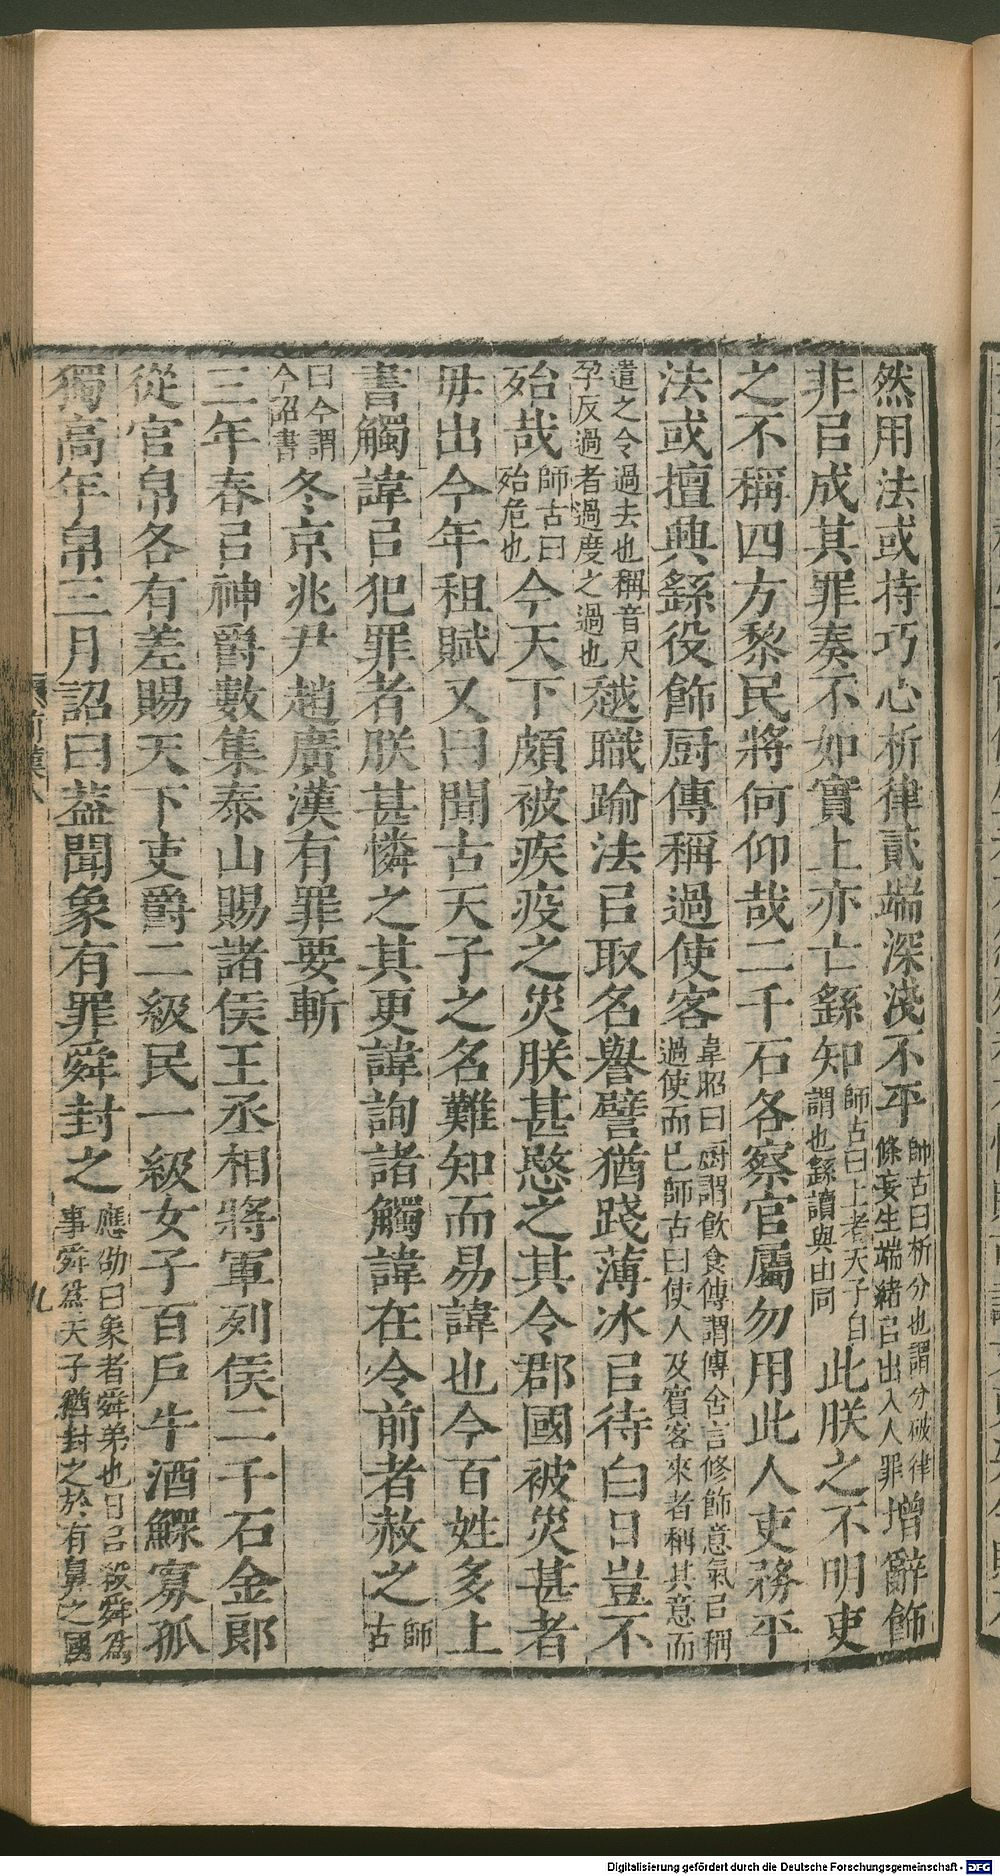 然用法或持巧心析律貳端深淺不平師古曰析分也謂分破律條妄生端緒㠯出入人罪增辭飾
非㠯成其罪奏不如實上亦亡繇知師古曰上者天子自謂也繇讀與由同此朕之不明吏
之不稱四方黎民將何仰哉二千石各察官屬勿用此人吏務平
法或擅興繇役飾厨傳稱過使客韋昭曰厨謂飲食傳謂傳舍言修飾意氣㠯稱過使而已師古曰使人及賓客來者稱其意而
遣之令過去也稱音尺孕反過者過度之過也越職踰法㠯取名譽譬猶踐薄冰㠯待白日豈不
殆哉師古曰殆危也今天下頗被疾疫之災朕甚愍之其令郡國被災甚者
毋出今年租賦又曰聞古天子之名難知而易諱也今百姓多上
書觸諱㠯犯罪者朕甚憐之其更諱詢諸觸諱在令前者赦之師古
曰令謂今詔書冬京兆尹趙廣漢有罪要斬
三年春㠯神爵數集泰山賜諸侯王丞相將軍列侯二千石金郎
從官帛各有差賜天下吏爵二級民一級女子百戶牛酒鰥寡孤
獨高年帛三月詔曰葢聞象有罪舜封之應劭曰象者舜弟也日㠯殺舜爲事舜爲天子猶封之於有鼻之國
前漢八
九
Digitalisierung gefördert durch die Deutsche Forschungsgemeinschaft - DFG